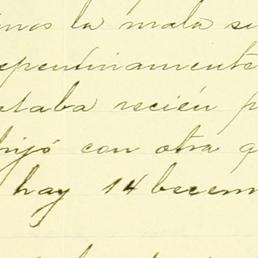 la mala
repentinamente
estaba recién
hijó con otra
hay 14 becerr